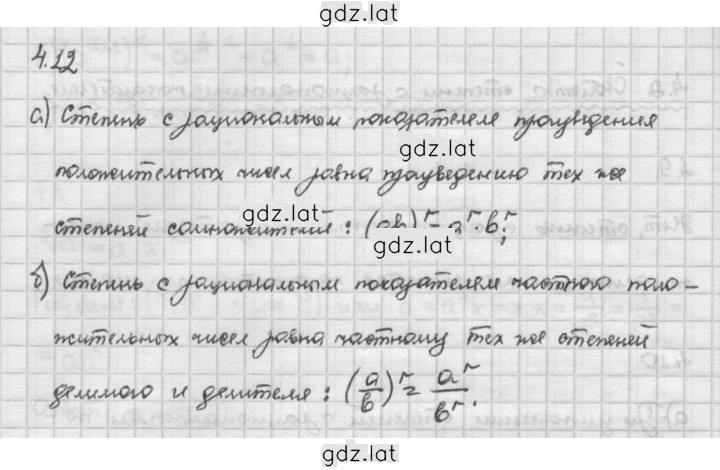 gdz.lat
4.12
а) Степень с рациональным показателем произведения
gdz.lat
положительных чисел равна произведению тех же
gdz.lat
степеней сомножителей: (ab)^r = a^r · b^r;
gdz.lat
б) Степень с рациональным показателем частного поло-
жительных чисел равна частному тех же степеней
делимого и делителя: (a/b)^r = a^r/b^r.
gdz.lat